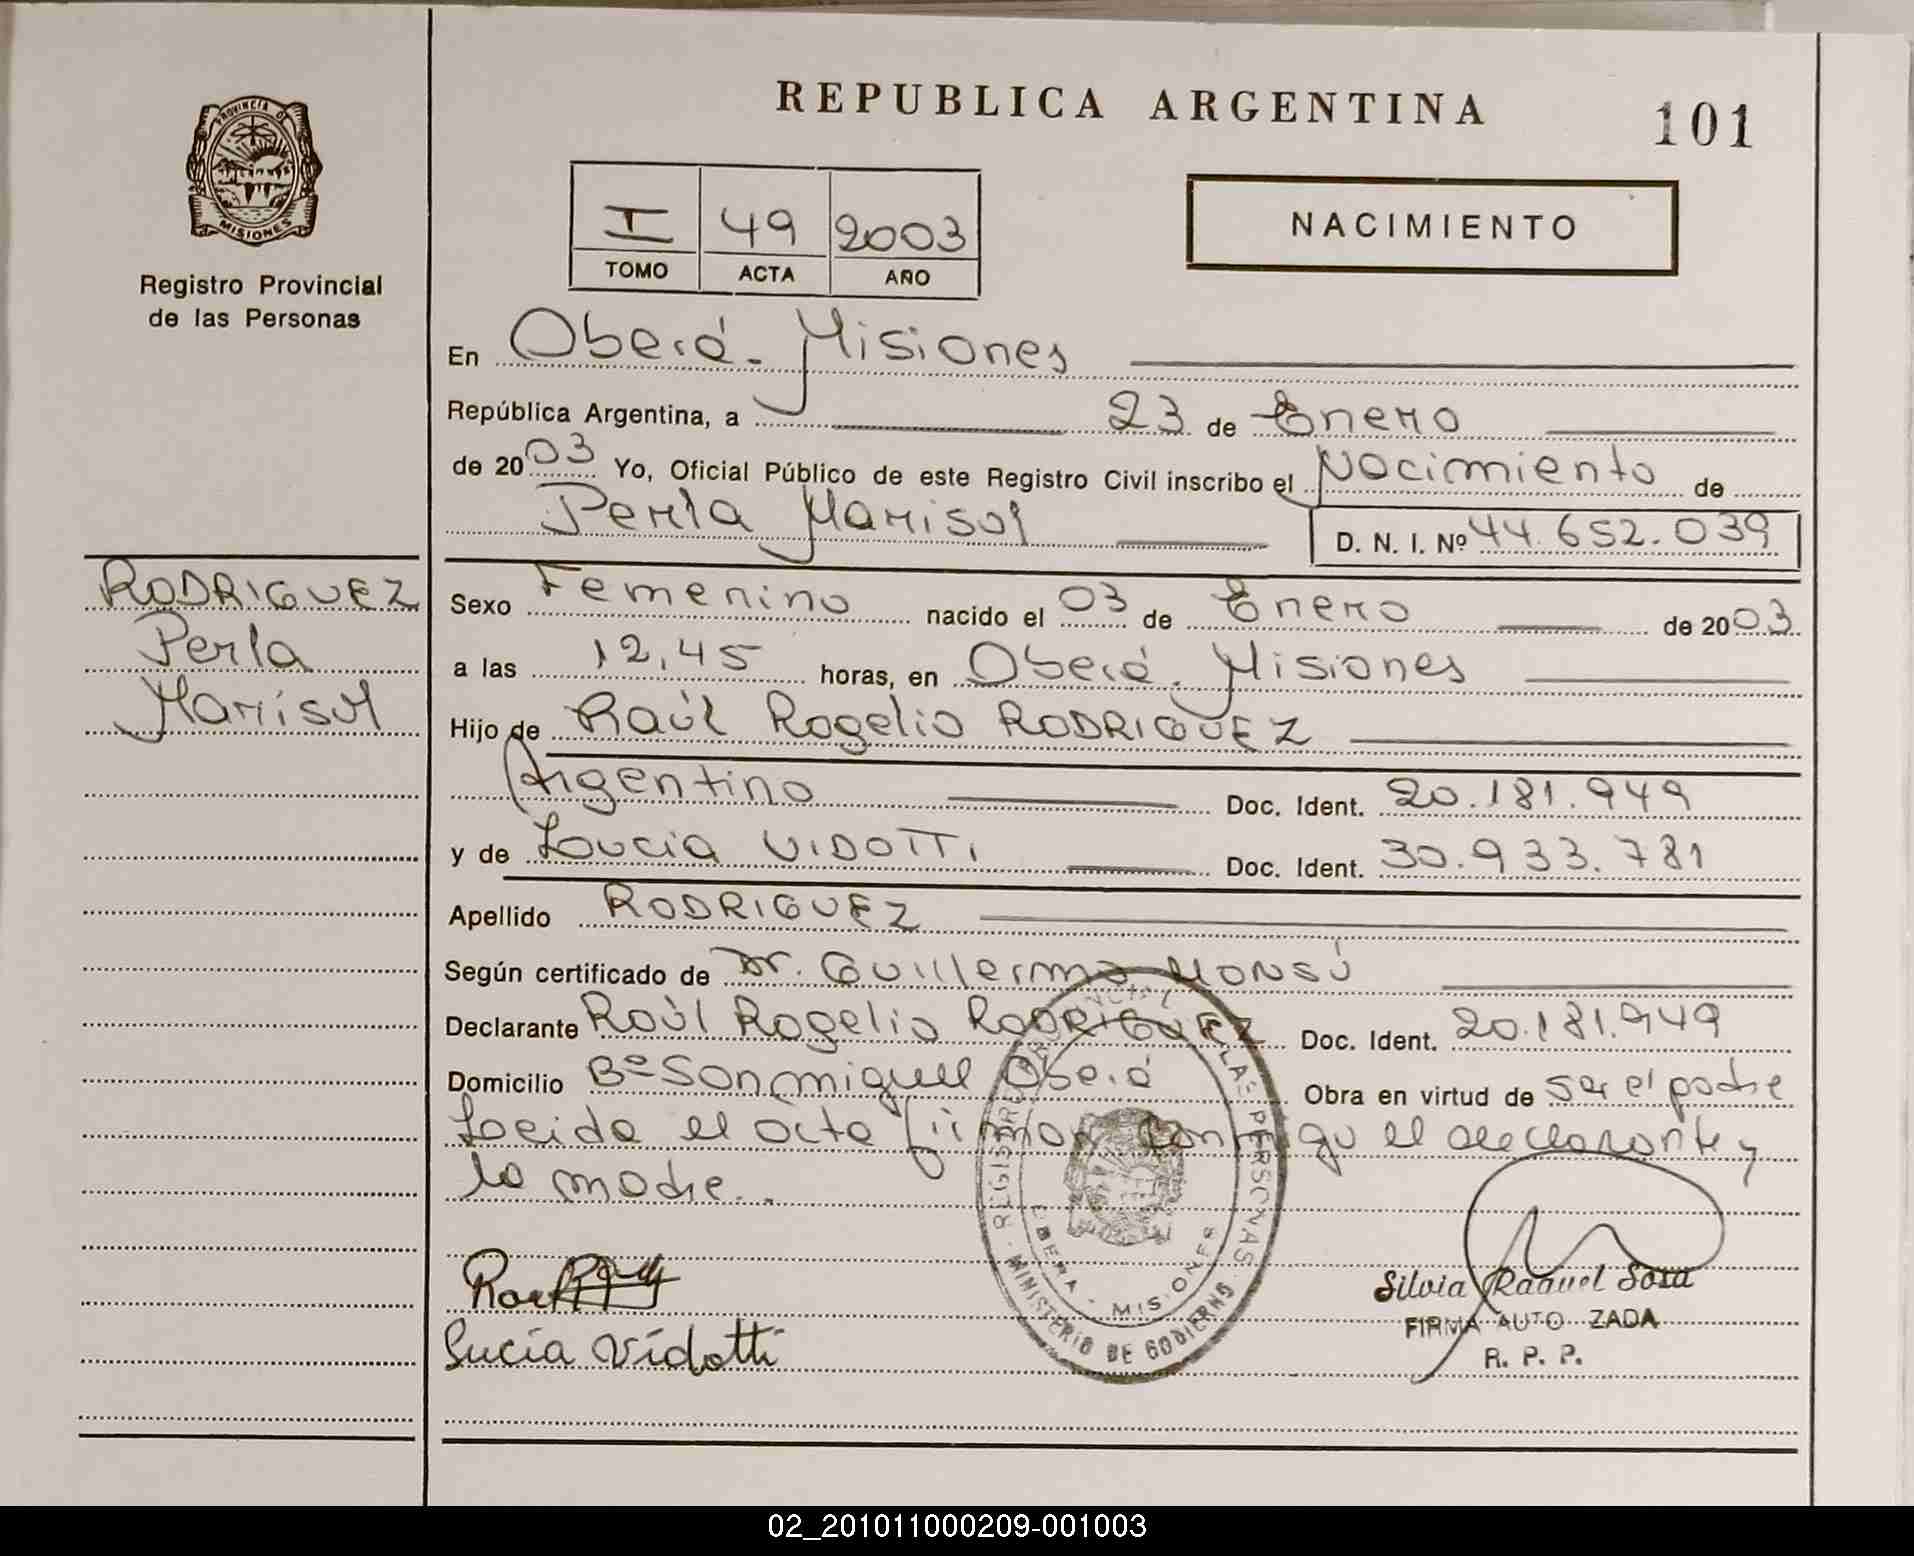 PROVINCIA DE
MISIONES
Registro Provincial
de las Personas
RODRIGUEZ
Perla
Marisol
REPUBLICA ARGENTINA
101
I 49 2003
TOMO ACTA AÑO
NACIMIENTO
En Oberá - Misiones
República Argentina, a 23 de Enero
de 2003 Yo, Oficial Público de este Registro Civil inscribo el Nacimiento de
Perla Marisol D. N. I. Nº 44.652.039
Sexo Femenino nacido el 03 de Enero de 2003
a las 12,45 horas, en Oberá - Misiones
Hijo de Raúl Rogelio RODRIGUEZ
Argentino Doc. Ident. 20.181.949
y de Lucia VIDOTTI Doc. Ident. 30.933.781
Apellido RODRIGUEZ
Según certificado de Dr. Guillermo MONSÚ
Declarante Raúl Rogelio RODRIGUEZ Doc. Ident. 20.181.949
Domicilio Bº San miguel Oberá Obra en virtud de ser el padre
Leida el acta firman conmigo el declarante y
la madre.
Lucía Vidotti
REGISTRO PROVINCIAL DE LAS PERSONAS
MINISTERIO DE GOBIERNO
OBERA - MISIONES
Silvia Raquel Sosa
FIRMA AUTO ZADA
R. P. P.
02_201011000209-001003